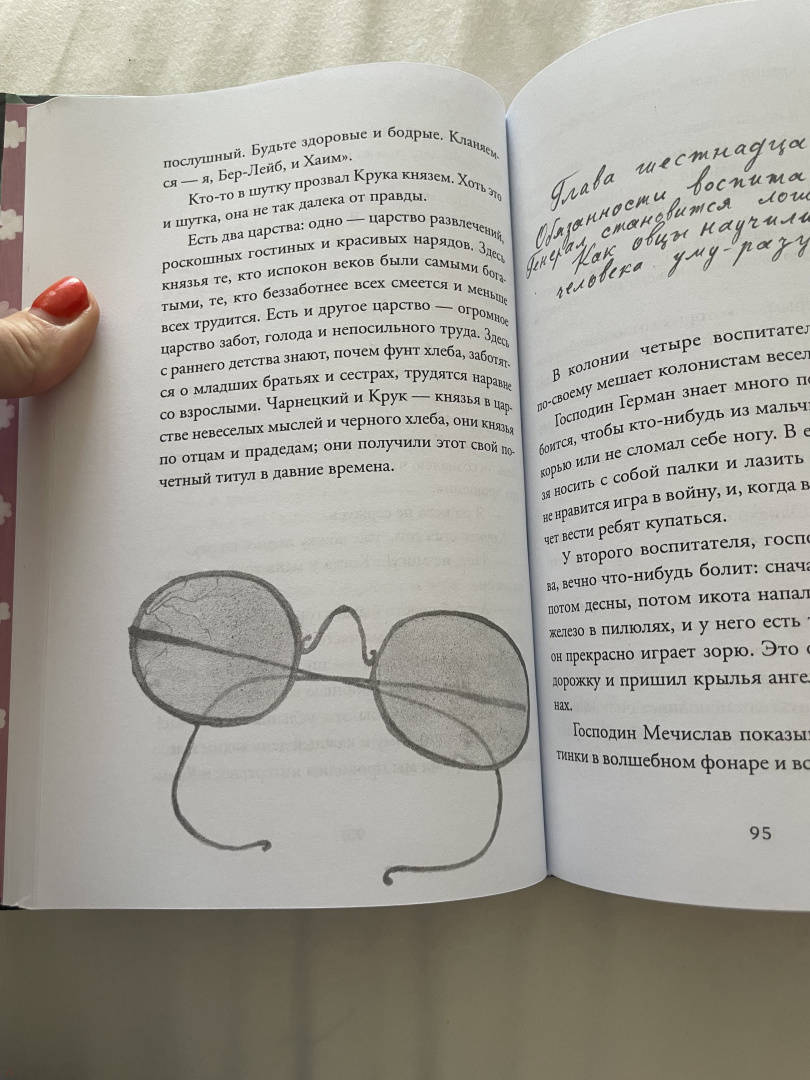 послушный. Будьте здоровые и бодрые. Кланяем-
ся — я, Бер-Лейб, и Хаим».
Кто-то в шутку прозвал Крука князем. Хоть это
и шутка, она не так далека от правды.
Есть два царства: одно — царство развлечений,
роскошных гостиных и красивых нарядов. Здесь
князья те, кто испокон веков были самыми бога-
тыми, те, кто беззаботнее всех смеется и меньше
всех трудится. Есть и другое царство — огромное
царство забот, голода и непосильного труда. Здесь
с раннего детства знают, почем фунт хлеба, заботят-
ся о младших братьях и сестрах, трудятся наравне
со взрослыми. Чарнецкий и Крук — князья в цар-
стве невеселых мыслей и черного хлеба, они князья
по отцам и прадедам; они получили этот свой по-
четный титул в давние времена.
Глава шестнадца
Обязанности воспита
Генерал становится лош
Как овцы научили
человека уму-разу
В колонии четыре воспитател
по-своему мешает колонистам весел
Господин Герман знает много пе
боится, чтобы кто-нибудь из мальч
корью или не сломал себе ногу. В е
зя носить с собой палки и лазить
не нравится игра в войну, и, когда в
чет вести ребят купаться.
У второго воспитателя, госпо
ва, вечно что-нибудь болит: снача
потом десны, потом икота напал
железо в пилюлях, и у него есть т
он прекрасно играет зорю. Это о
дорожку и пришил крылья ангел
нах.
Господин Мечислав показыв
тинки в волшебном фонаре и вс
95